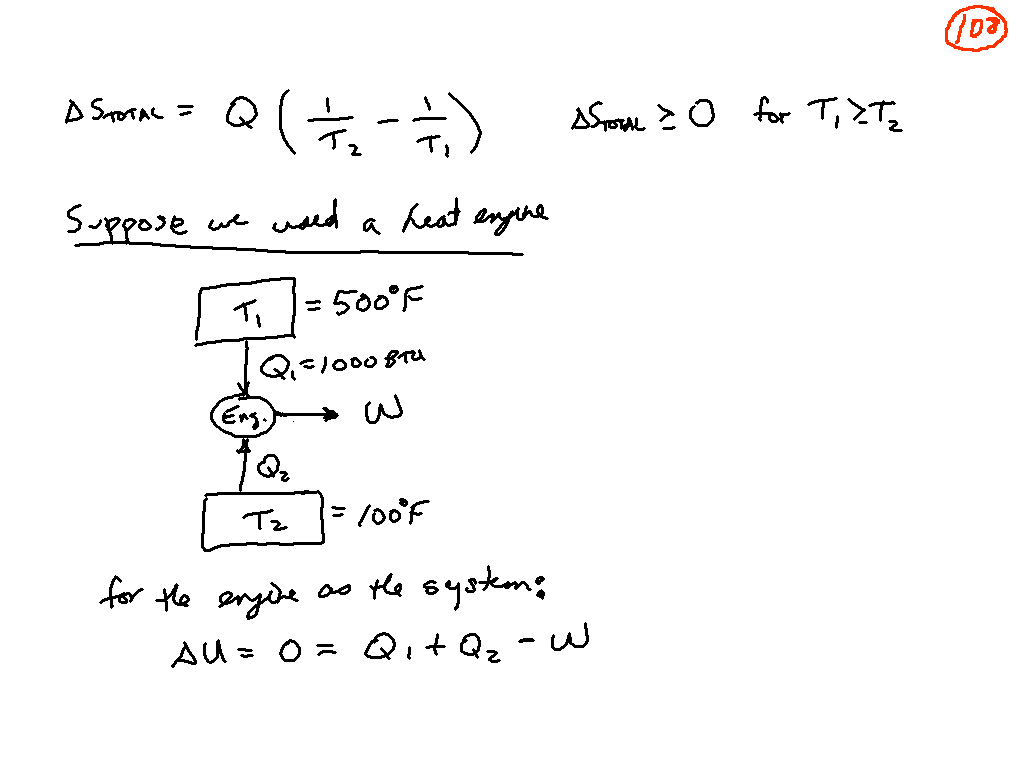 102
ΔS_TOTAL = Q ( 1/T₂ − 1/T₁ )    ΔS_TOTAL ≥ 0 for T₁ ≥ T₂
Suppose we used a heat engine
T₁ = 500°F
Q₁ = 1000 BTU
Eng. → W
Q₂
T₂ = 100°F
for the engine as the system:
ΔU = 0 = Q₁ + Q₂ − W